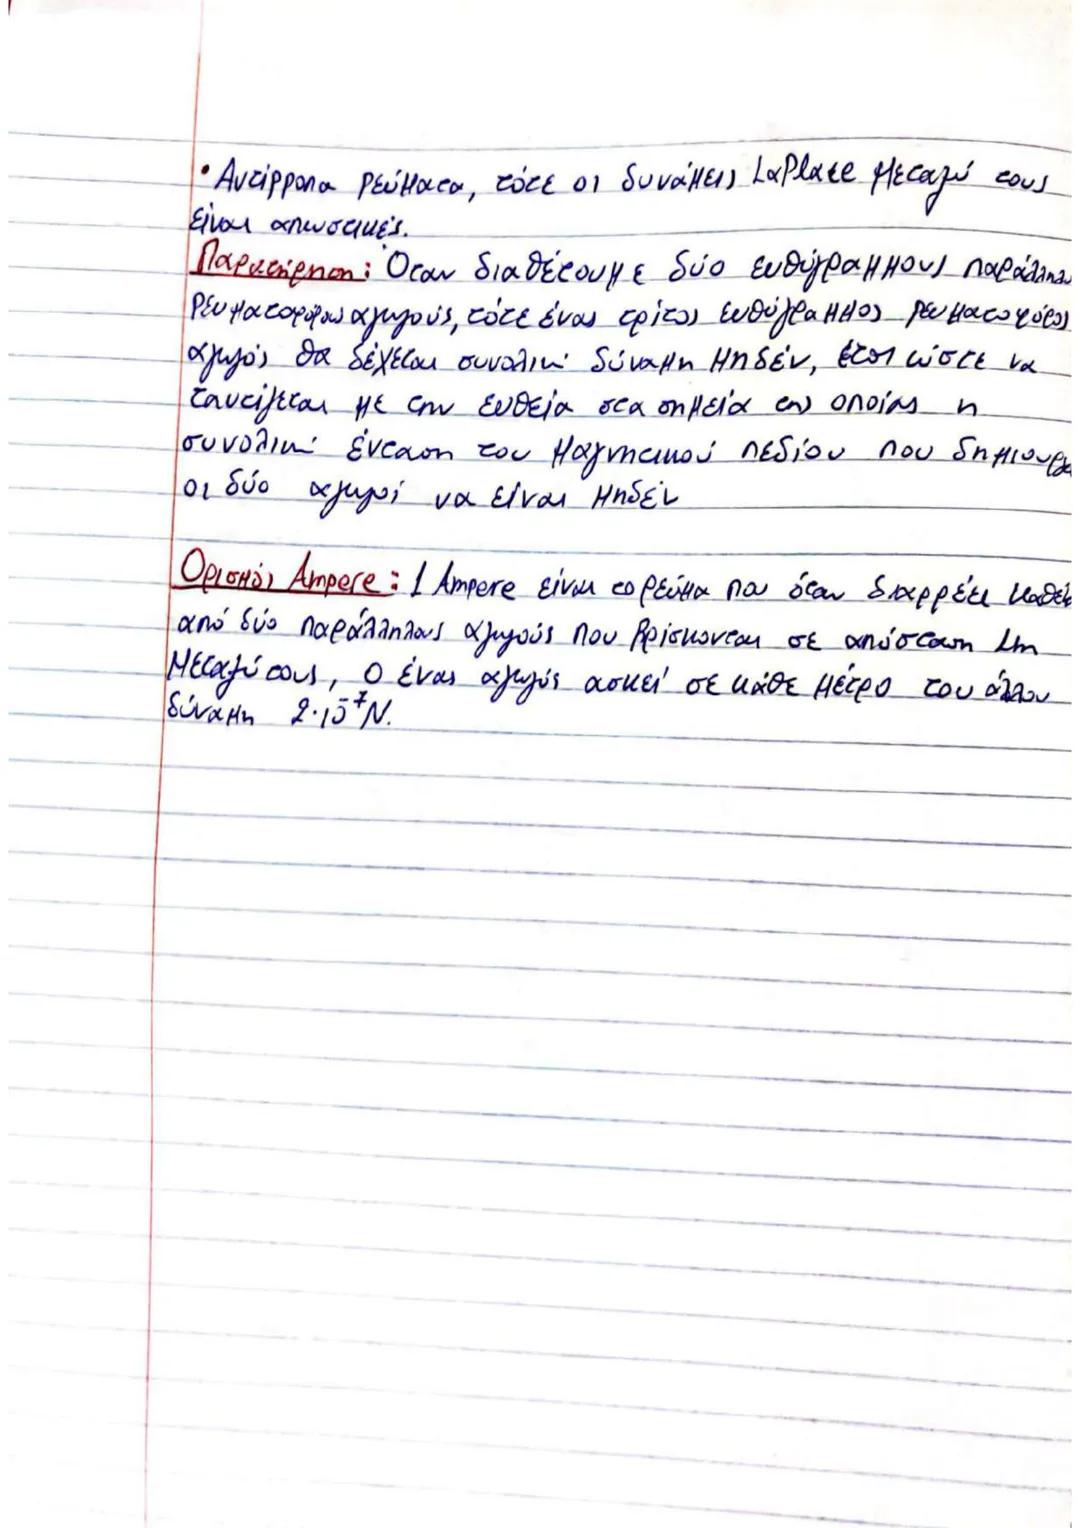 • Αντίρροπα ρεύματα, τότε οι δυνάμεις LaPlace μεταξύ τους
είναι απωστικές.
Παρατήρηση: Όταν διαθέτουμε δύο ευθύγραμμους παράλληλου
ρευματοφόρους αγωγούς, τότε ένας τρίτος ευθύγραμμος ρευματοφόρος
αγωγός θα δέχεται συνολική δύναμη μηδέν, έτσι ώστε να
ταυτίζεται με την ευθεία στα σημεία της οποίας η
συνολική ένταση του μαγνητικού πεδίου που δημιουργο
οι δύο αγωγοί να είναι μηδέν
Ορισμός Ampere: 1 Ampere είναι το ρεύμα που όταν διαρρέει καθέν
από δύο παράλληλους αγωγούς που βρίσκονται σε απόσταση 1m
μεταξύ τους, ο ένας αγωγός ασκεί σε κάθε μέτρο του άλλου
δύναμη 2·10⁻⁷N.